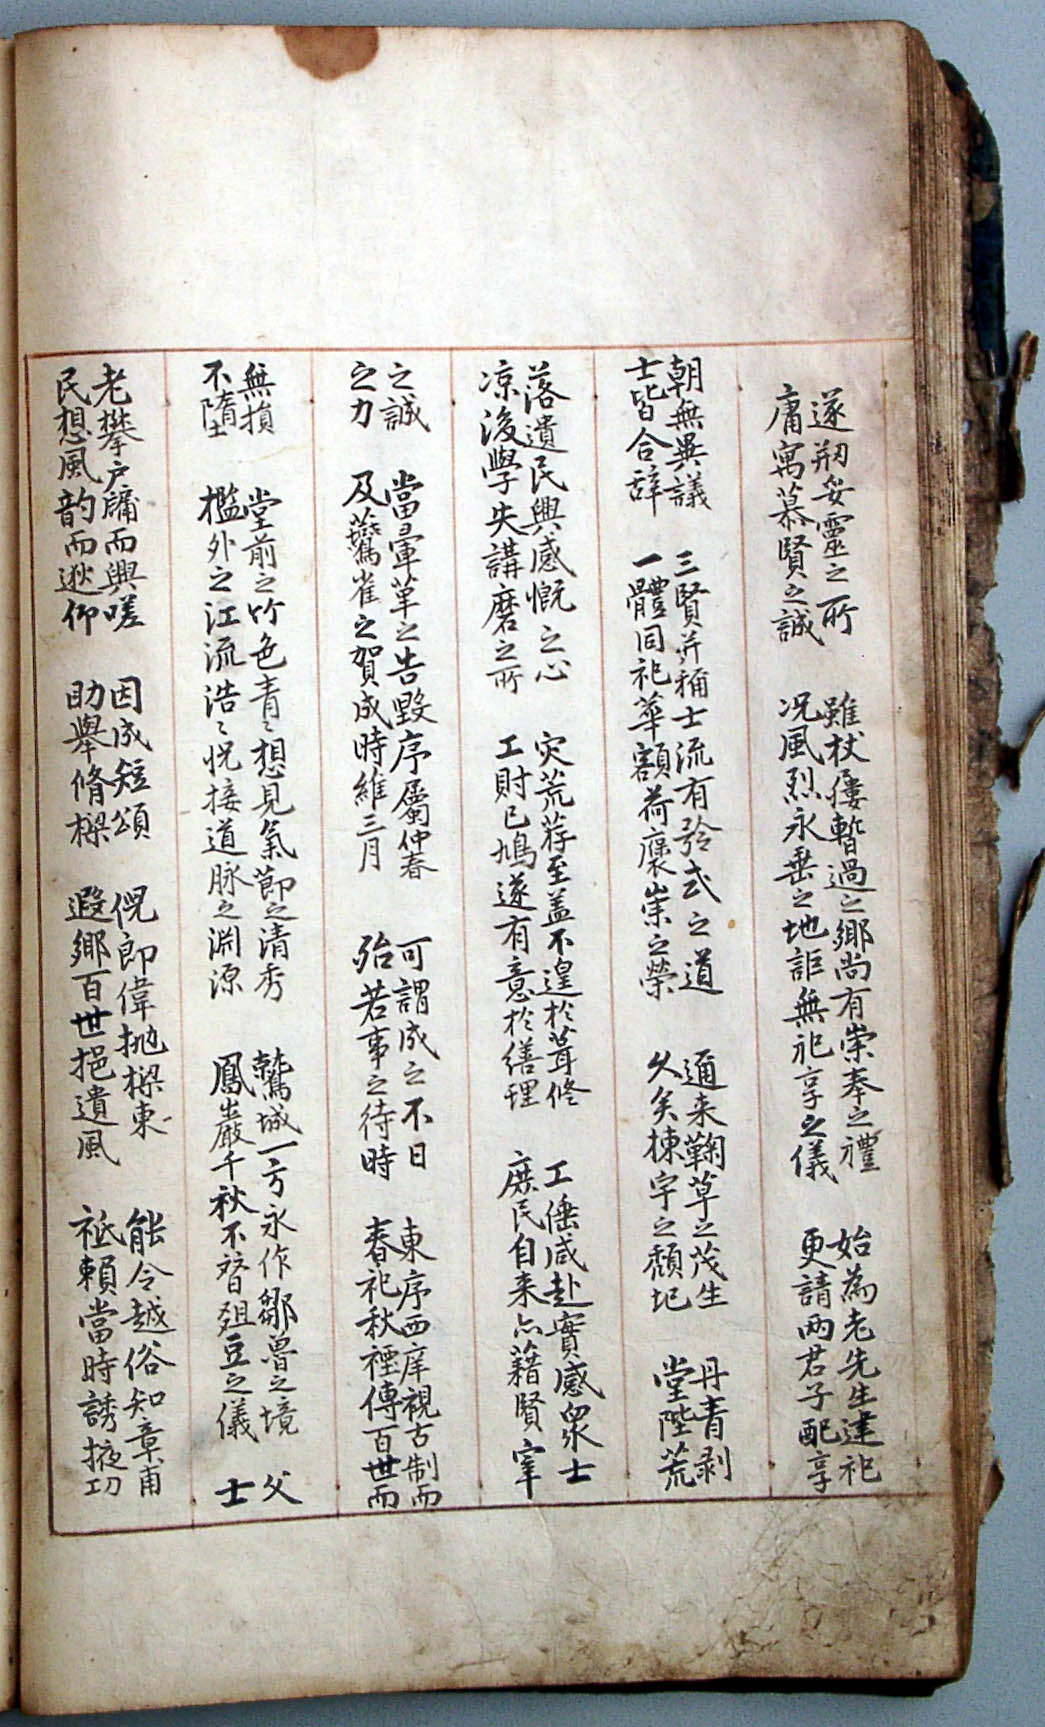 遂刱妥靈之所 雖杖屨暫過之鄉尚有崇奉之禮 始為老先生建祀
庸寓慕賢之誠 况風烈永垂之地詎無祀享之儀 更請兩君子配享
朝無異議 三賢并稱士流有矜式之道 邇来鞠草之茂生 丹青剥
士皆合辞 一體同祀華額荷褒崇之榮 久矣棟宇之頹圮 堂陛荒
落遺民興感慨之心 灾荒荐至盖不遑於葺修 工倕咸赴實感衆士
凉後學失講磨之所 工財已鳩遂有意於繕理 庶民自来亦藉賢宰
之誠 當翬革之告毀序屬仲春 可謂成之不日 東序西庠視古制而
之力 及鷰雀之賀成時維三月 殆若事之待時 春祀秋禋傳百世而
無損 堂前之竹色青〻想見氣節之清秀 鷲城一方永作鄒魯之境 父
不墮 檻外之江流浩〻怳接道脉之淵源 鳳巖千秋不替俎豆之儀 士
老攀戶牖而興嗟 因成短頌 倪郎偉抛樑東 能令越俗知章甫
民想風韵而逖仰 助舉脩樑 遐鄉百世挹遺風 祗賴當時誘掖功